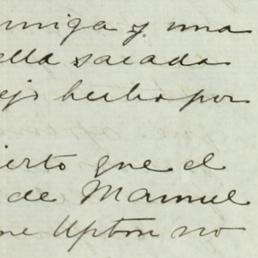 amiga y una
ella sacada
ejo hecho por
ierto que el
de Manuel
ne Upton no